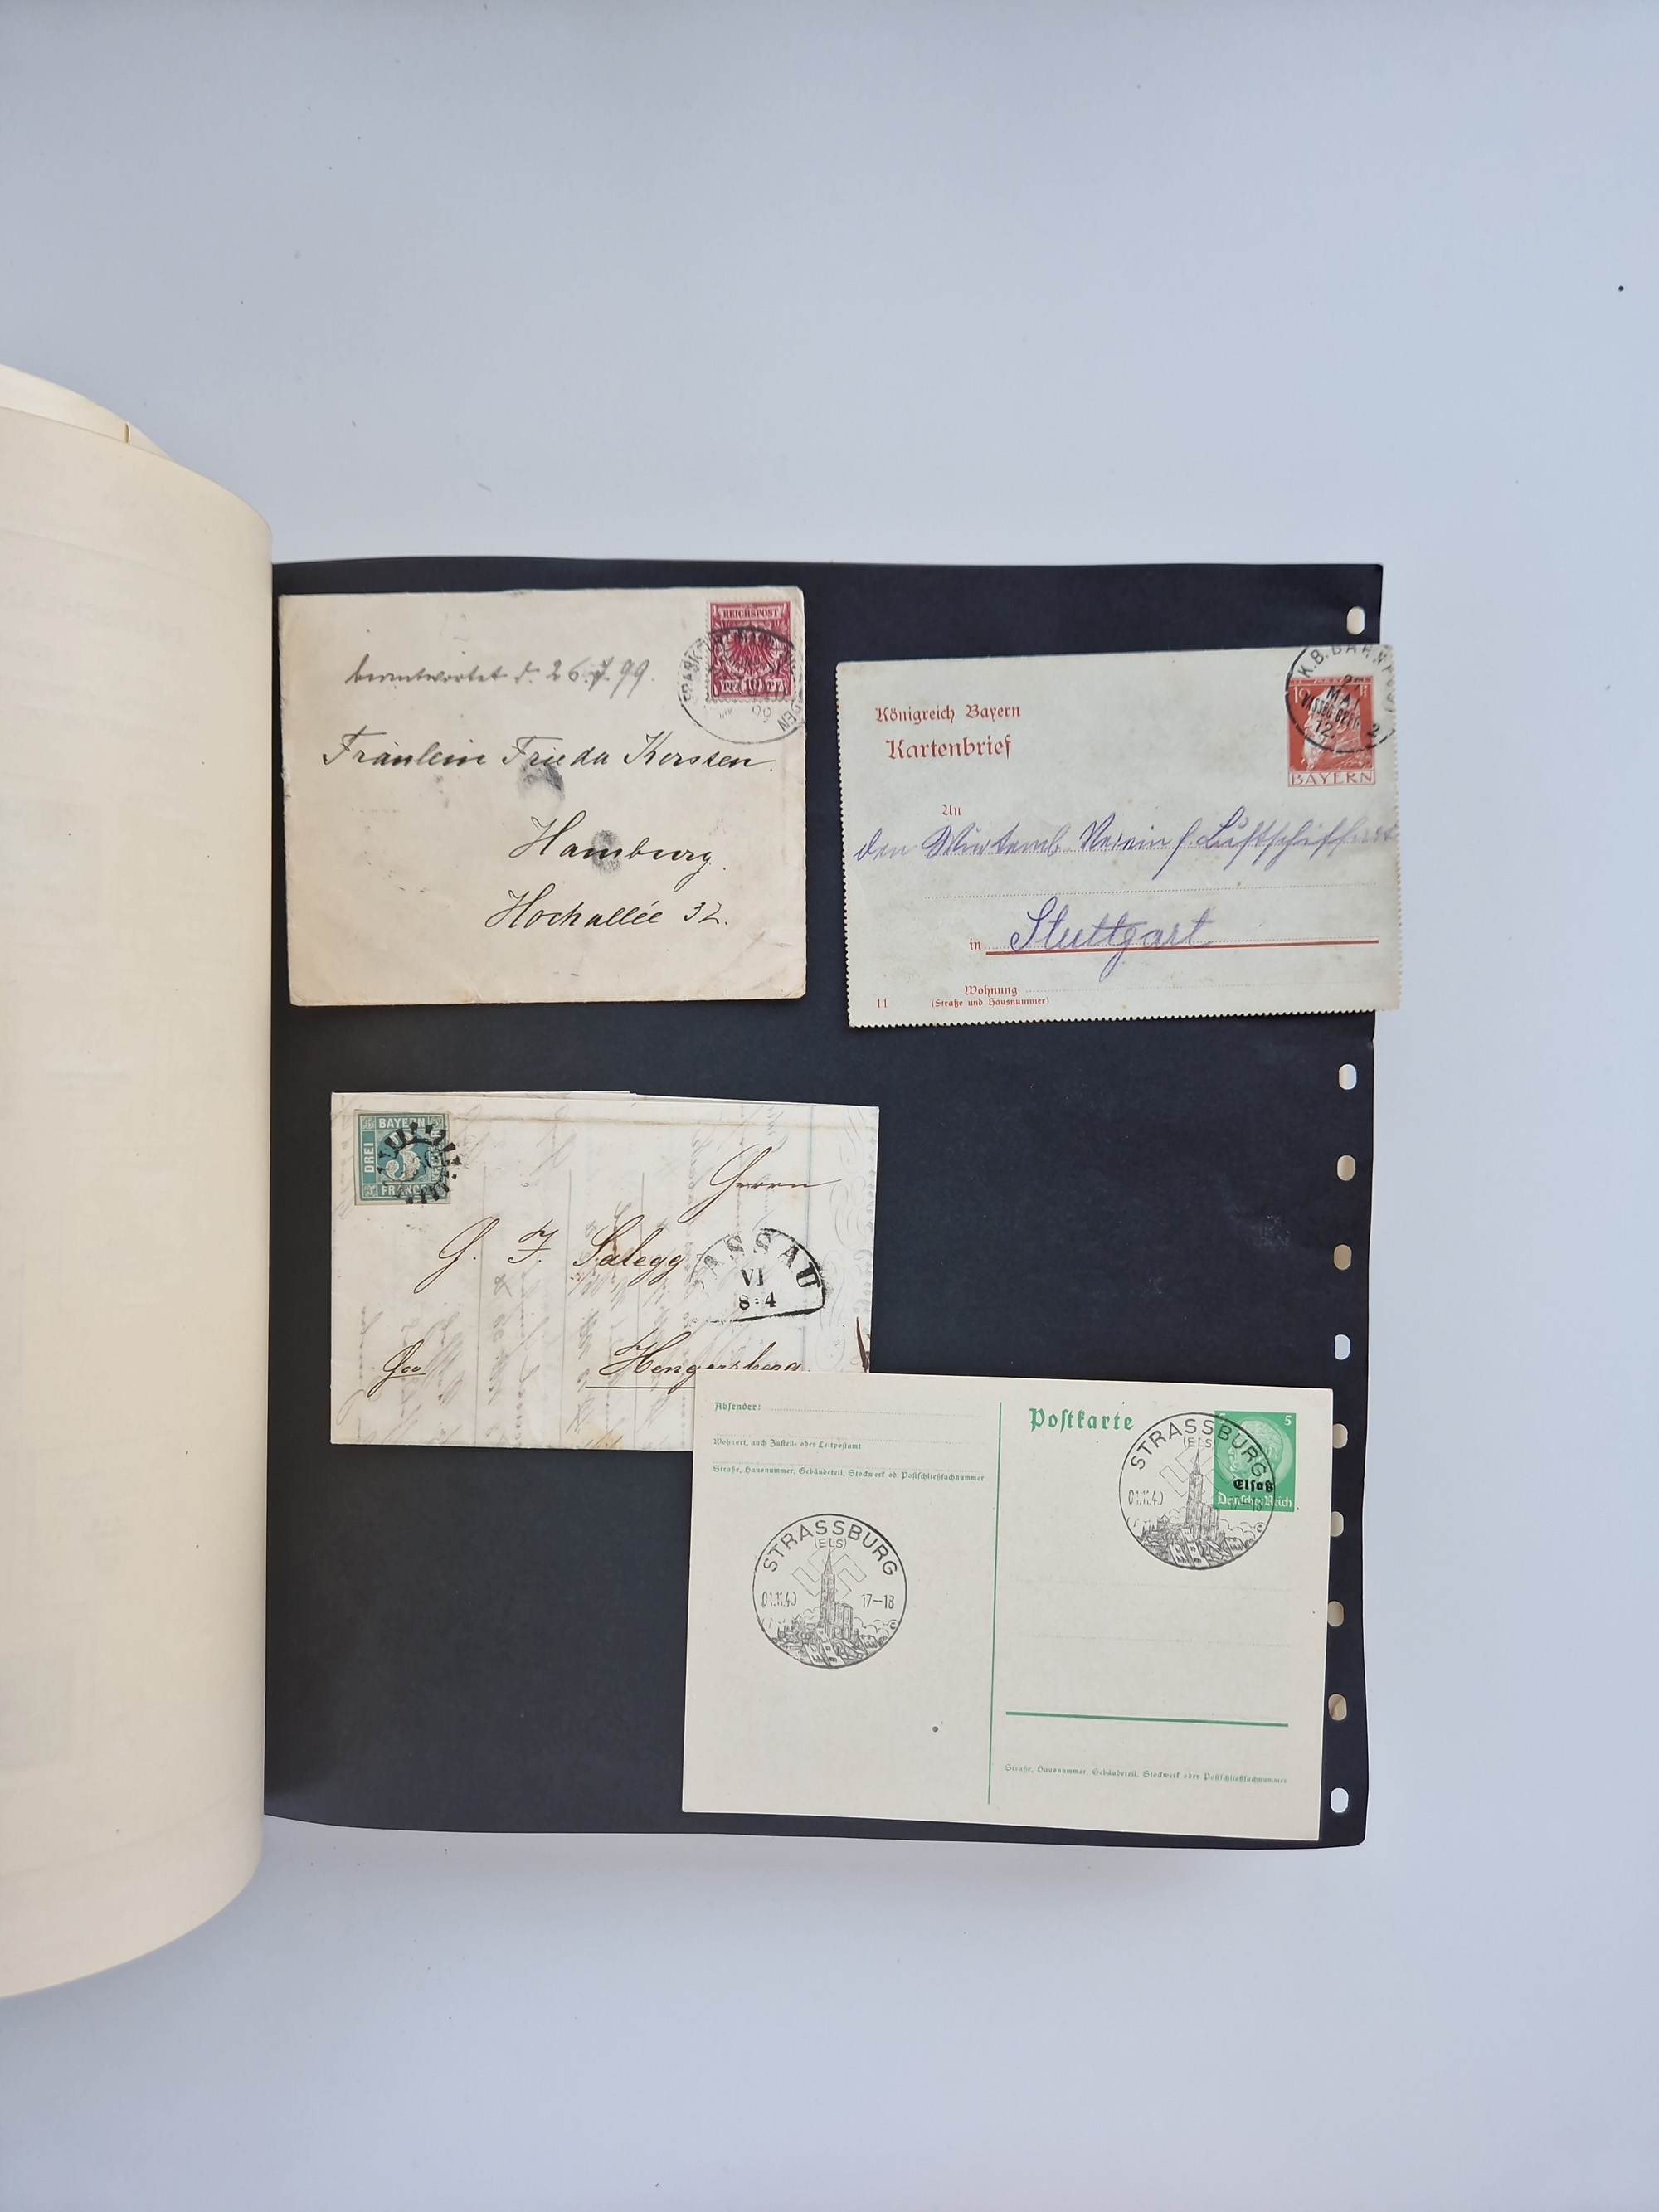 beantwortet d. 26.7.99.
REICHSPOST
10
Fräulein Frieda Kersten.
Hamburg.
Hochallée 32.
Königreich Bayern
Kartenbrief
K.B.BAHN
MAI
12.
BAYERN
An
den Würtemb. Verein f. Luftschiffahrt
in Stuttgart
Wohnung
(Straße und Hausnummer)
11
BAYERN
DREI
3
Herrn
G. F. Salegg
PASSAU
VI
8:4
Hengersberg.
Absender:
Wohnort, auch Zustell- oder Leitpostamt
Straße, Hausnummer, Gebäudeteil, Stockwerk od. Postschließfachnummer
Postkarte
5
Elsaß
Deutsches Reich
STRASSBURG
(ELS)
01.11.40
STRASSBURG
(ELS)
01.11.40 17-18
Straße, Hausnummer, Gebäudeteil, Stockwerk oder Postschließfachnummer